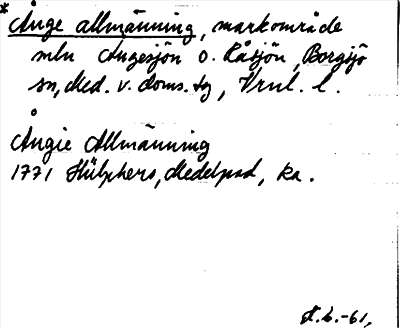 * Ånge allmänning, markområde
mln Ångesjön o. Råsjön, Borgsjö
sn, Med. v. doms. tg, Vrnl. l.
Ångie Allmänning
1771 Hülphers, Medelpad, ka.
K.L.-61,